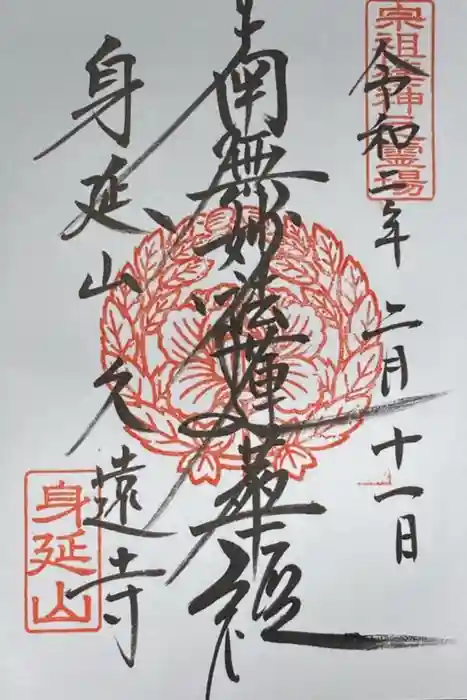 宗祖棲神霊場
令和二年 二月十一日
南無妙法蓮華経
身延山久遠寺
身延山